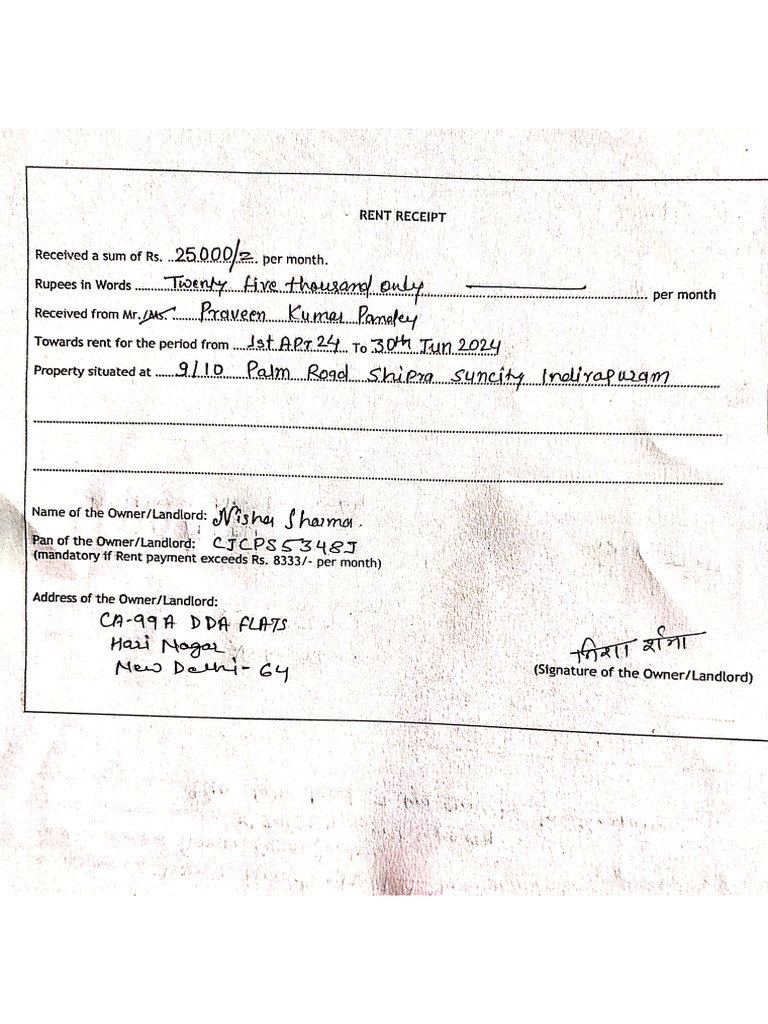 RENT RECEIPT
Received a sum of Rs. ..25.000/=.. per month.
Rupees in Words ........Twenty five thousand only........ per month
Received from Mr./Ms. ......Praveen Kumar Pandey......
Towards rent for the period from ...1st APr 24... To 30th Jun 2024
Property situated at .....9/10 Palm Road Shipra Suncity Indirapuram
Name of the Owner/Landlord: Nisha Sharma.
Pan of the Owner/Landlord: CJCPS5348J
(mandatory if Rent payment exceeds Rs. 8333/- per month)
Address of the Owner/Landlord:
CA-99 A DDA FLATS
Hari Nagar
New Delhi - 64
निशा र्शमा
(Signature of the Owner/Landlord)